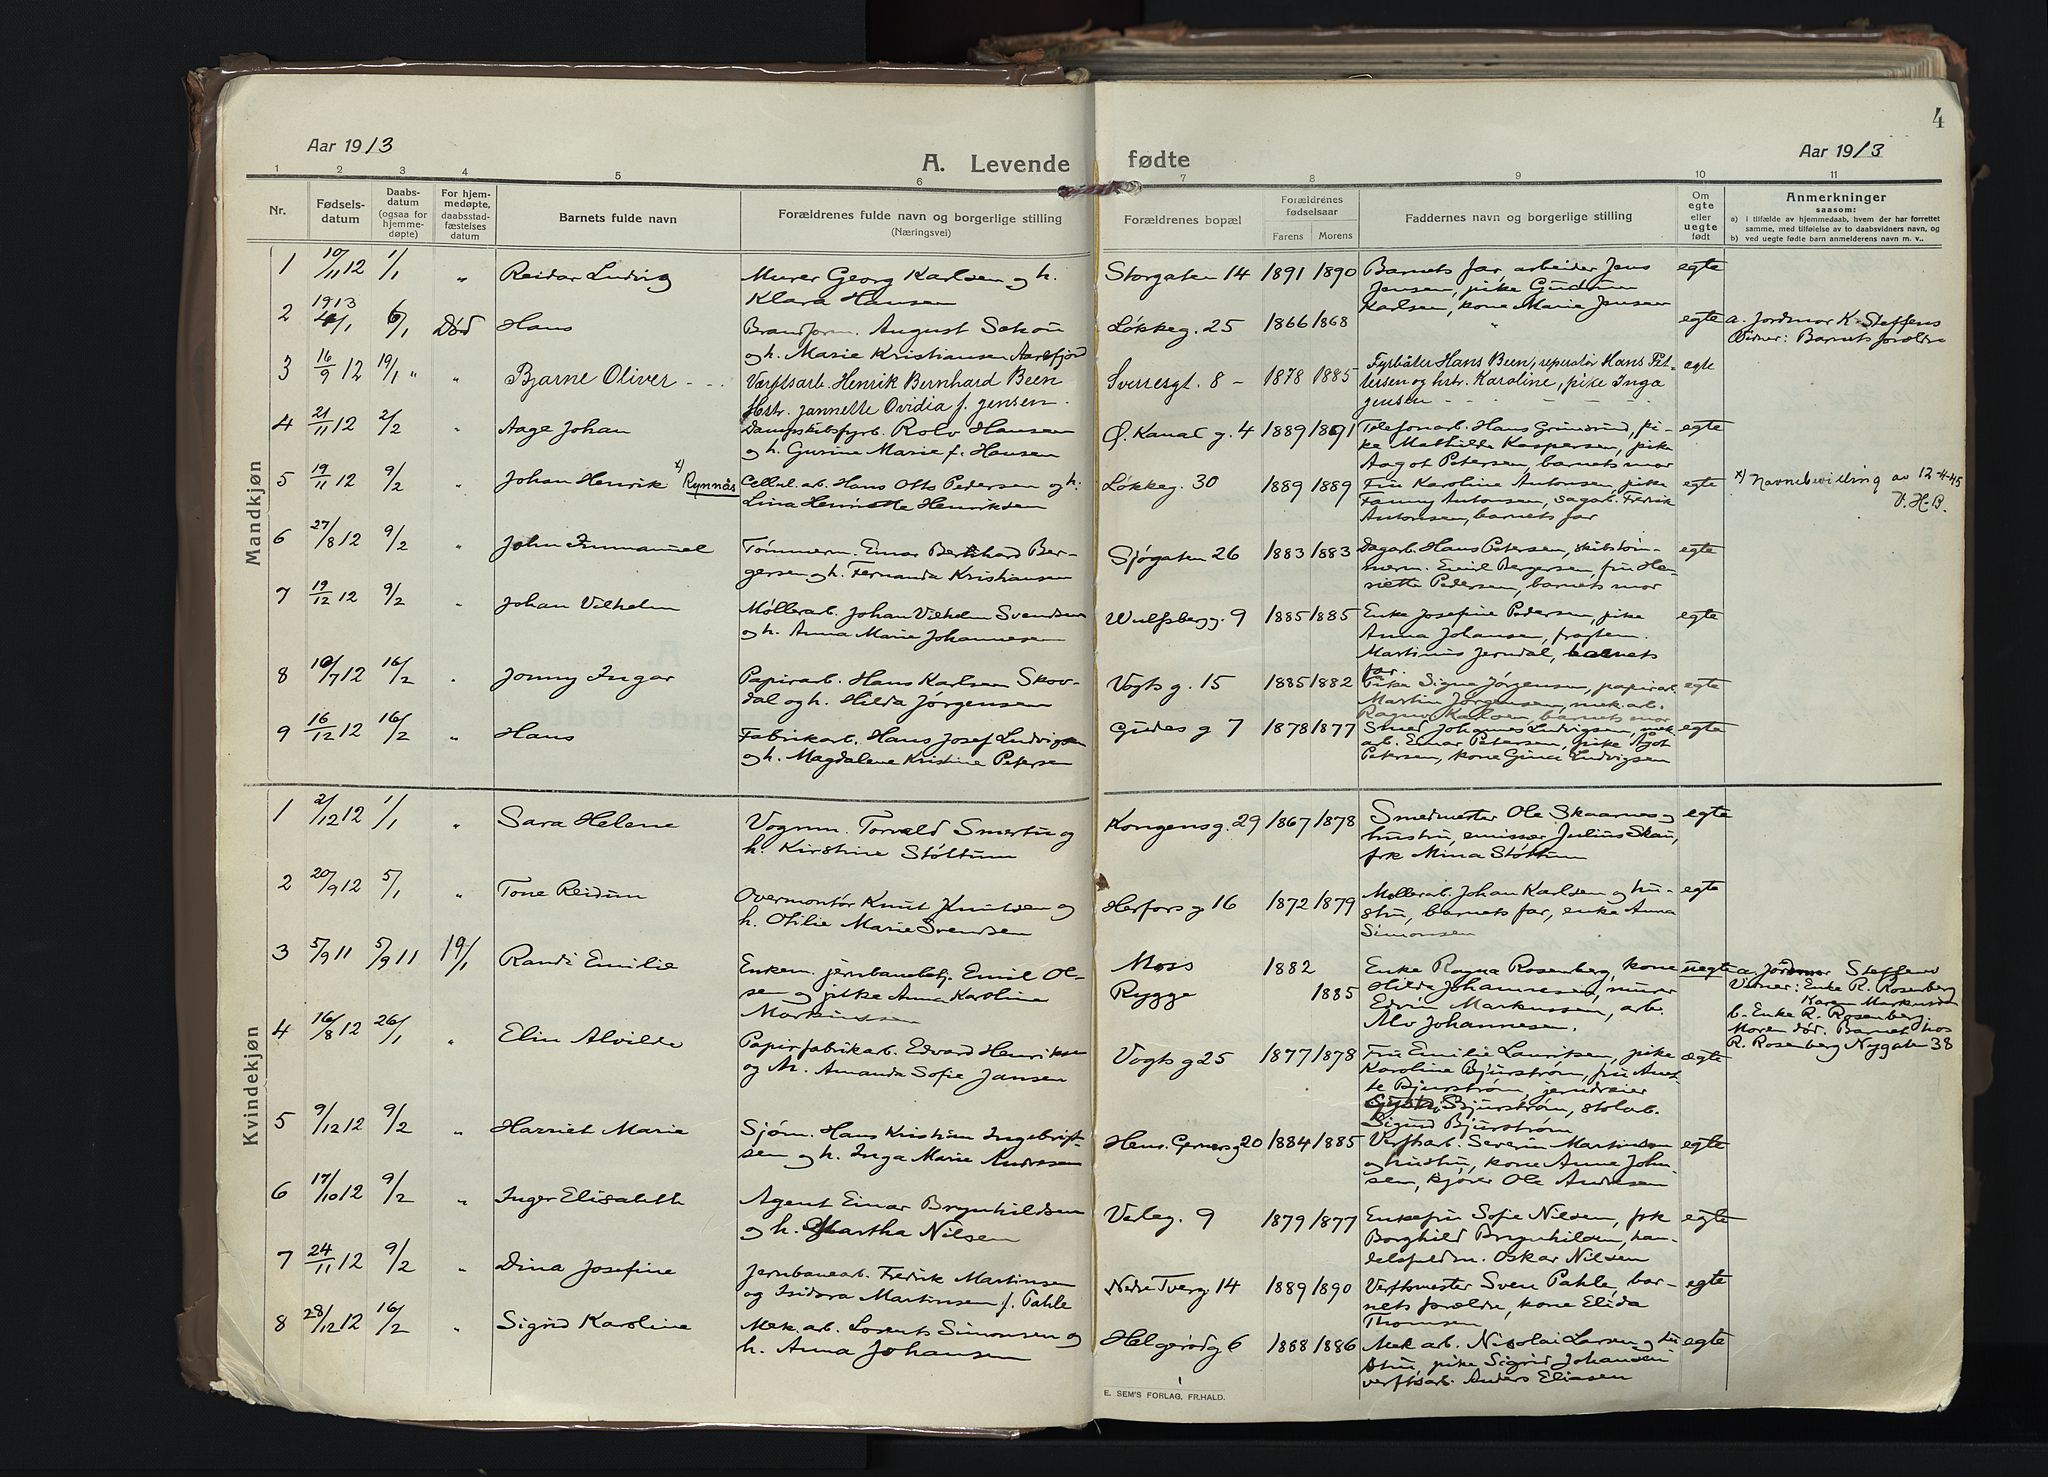 4
Aar 1913
A. Levende fødte
Aar 1913
1 2 3 4 5 6 7 8 9 10 11
Nr.
Fødsels-
datum
Daabs-
datum
(ogsaa for
hjemme-
døpte)
For hjem-
medøpte,
daabsstad-
fæstelses
datum
Barnets fulde navn
Forældrenes fulde navn og borgerlige stilling
(Næringsvei)
Forældrenes bopæl
Forældrenes
fødselsaar
Farens Morens
Faddernes navn og borgerlige stilling
Om
egte
eller
uegte
født
Anmerkninger
saasom:
a) i tilfælde av hjemmedaab, hvem der har forrettet
samme, med tilføielse av to daabsvidners navn, og
b) ved uegte fødte barn anmelderens navn m. v..
Mandkjøn
1 10/11 12 1/1 " Reidar Ludvig
Murer Georg Karlsen og h.
Klara Hansen
Storgaten 14 1891 1890
Barnets far, arbeider Jens
Jensen, pike Gudrun
Karlsen, kone Marie Jensen
egte
2 1913 6/1 Død Hans
August Schou
og h. Marie Kristiansen Aarefjord
Løkkeg. 25 1866 1868 " egte
a. Jordmor K. Steffens
Vidner: Barnets forældre
3 16/9 12 19/1 " " Bjarne Oliver
Værftsarb. Henrik Bernhard Been
Hstr. Jannette Ovidia f. Jensen.
Sverresgt. 8 - 1878 1885
Fyrbøter Hans Been, reperatør Hans Pet-
tersen og hstr. Karoline, pike Inga
Jensen
egte
4 21/11 12 2/2 " Aage Johan
Dampskibsfyrb. Rolv Hansen
og h. Gurine Marie f. Hansen
Ø. Kanal g. 4 1889 1891
Telefonarb. Hans Grimsrud, pi-
ke Mathilde Kaspersen, pike
Aagot Petersen, barnets mor
egte
5 19/11 12 9/2 " Johan Henrik x) Rynnås
Cellul. arb. Hans Otto Pedersen og h.
Lina Henriette Henriksen
Løkkeg. 30 1889 1889
Fru Karoline Antonsen, pike
Fanny Antonsen, sagarb. Fredrik
Antonsen, barnets far
egte
x) Navnebevilling av 12-4-45
V. H-B.
6 27/8 12 9/2 " John Immanuel
Tømmerm. Einar Bernhard Ber-
gersen og h. Fernanda Kristiansen
Sjøgaten 26 1883 1883
Dagarb. Hans Petersen, skibstøm-
merm. Emil Bergersen, fru Hen-
riette Pedersen, barnets mor
egte
7 19/12 12 9/2 " Johan Vilhelm
Møllerarb. Johan Vilhelm Svendsen
og h. Anna Marie Johannesen
Wulfsbergg. 9 1885 1885
Enke Josefine Pedersen, pike
Anna Johansen, fragtem.
Martinius Jerndal, barnets
far.
egte
8 10/7 12 16/2 " Jonny Ingar
Papirarb. Hans Karlsen Skov-
dal og h. Hilda Jørgensen
Vogts g. 15 1885 1882
Pike Signe Jørgensen, papirarb.
Martin Jørgensen, mek. arb.
Ragnv. Karlsen, barnets mor
egte
9 16/12 12 16/2 " Hans
Fabrikarb. Hans Josef Ludvigsen
og h. Magdalene Kristine Petersen
Gudes g 7 1878 1877
Smed Johannes Ludvigsen, mek.
arb. Einar Petersen, pike Agot
Petersen, kone Gina Ludvigsen
egte
Kvindekjøn
1 2/12 12 1/1 " Sara Helene
Vognm. Torvald Smertu og
h. Kirstine Støltum
Kongens g. 29 1867 1878
Smedmester Ole Skaarnes og
hustru, emissær Julius Skau,
frk Mina Støltum
egte
2 20/9 12 5/1 " Tone Reidun
Overmontør Knut Knutsen og
h. Otilie Marie Svendsen
Herfors g 16 1872 1879
Møllerarb. Johan Karlsen og hu-
stru, barnets far, enke Anna
Simonsen
egte
3 5/9 11 5/9 11 19/1 Randi Emilie
Enkem. jernbanebetj. Emil Ol-
sen og pike Anna Karoline
Markussen
Moss 1882
Rygge 1885
Enke Ragna Rosenberg, kone
Hilda Johannesen, murer
Edvin Markussen, arb.
Alv Johannesen.
uegte
a. Jordmor Steffens
Vidner: Enke R. Rosenberg
Karen Markussen
b. Enke R. Rosenberg.
Moren død. Barnet hos
R. Rosenberg Nygaten 38
4 16/8 12 26/1 " Elin Alvilde
Papirfabrikarb. Edvard Henriksen
og h. Amanda Sofie Jansen
Vogts g 25 1877 1878
Fru Emilie Lauritsen, pike
Karoline Bjurstrøm, fru Anet-
te Bjurstrøm, jerndreier
Bjurstrøm, stolarb.
Sigurd Bjurstrøm
egte
5 9/12 12 9/2 " Harriet Marie
Sjøm. Hans Kristian Ingebrigt-
sen og h. Inga Marie Andresen
Henr. Gerners g 20 1884 1885
Verftsarb. Severin Martinsen
og hustru, kone Anne John-
sen, kjører Ole Andresen
egte
6 17/10 12 9/2 " Inger Elisabeth
Agent Einar Brynhildsen
og h. Martha Nilsen
Valeg. 9 1879 1877
Enkefru Sofie Nilsen, frk
Borghild Brynhildsen, han-
delsfuldm. Oskar Nilsen
egte
7 24/11 12 9/2 " Dina Josefine
Jernbanearb. Fredrik Martinsen
og Isidora Martinsen f. Pahle
Nedre Tverg. 14 1889 1890
Verftmester Sven Pahle, bar-
nets forældre, kone Elida
Thomsen
egte
8 28/12 12 16/2 " Sigrid Karoline
Mek. arb. Lorents Simonsen og
h. Anna Johansen
Helgerødg 6 1888 1886
Mek arb. Nicolai Larsen og hu-
stru, pike Sigrid Johansen
verftsarb. Anders Eliasen
egte
E. SEM'S FORLAG, FR.HALD.